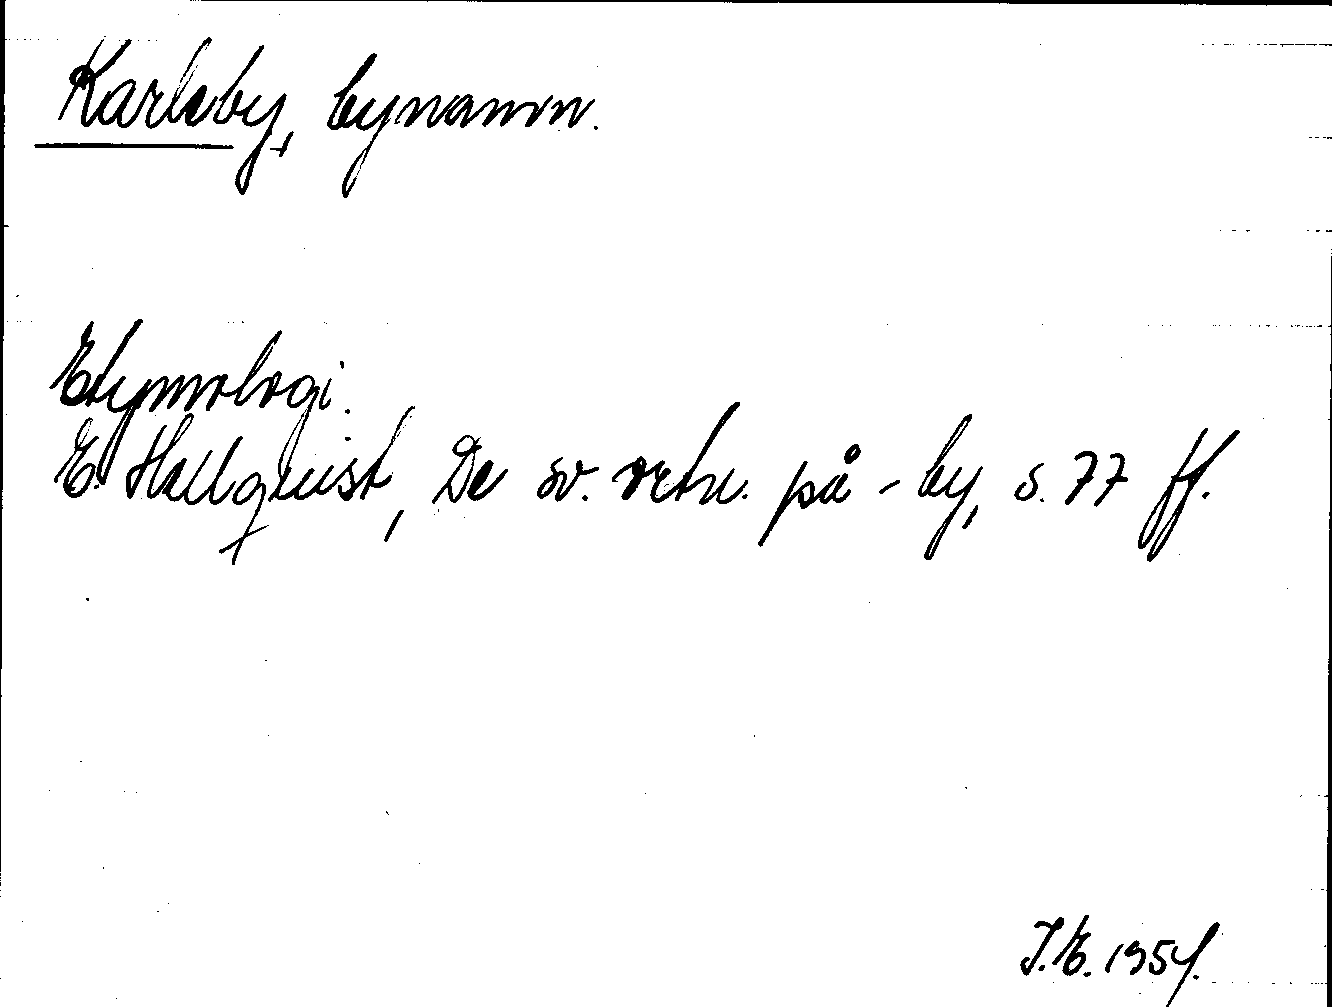 Karleby, bynamn.
Etymologi.
E. Hellquist, De sv. ortn. på -by, s. 77 ff.
J.E. 1954.